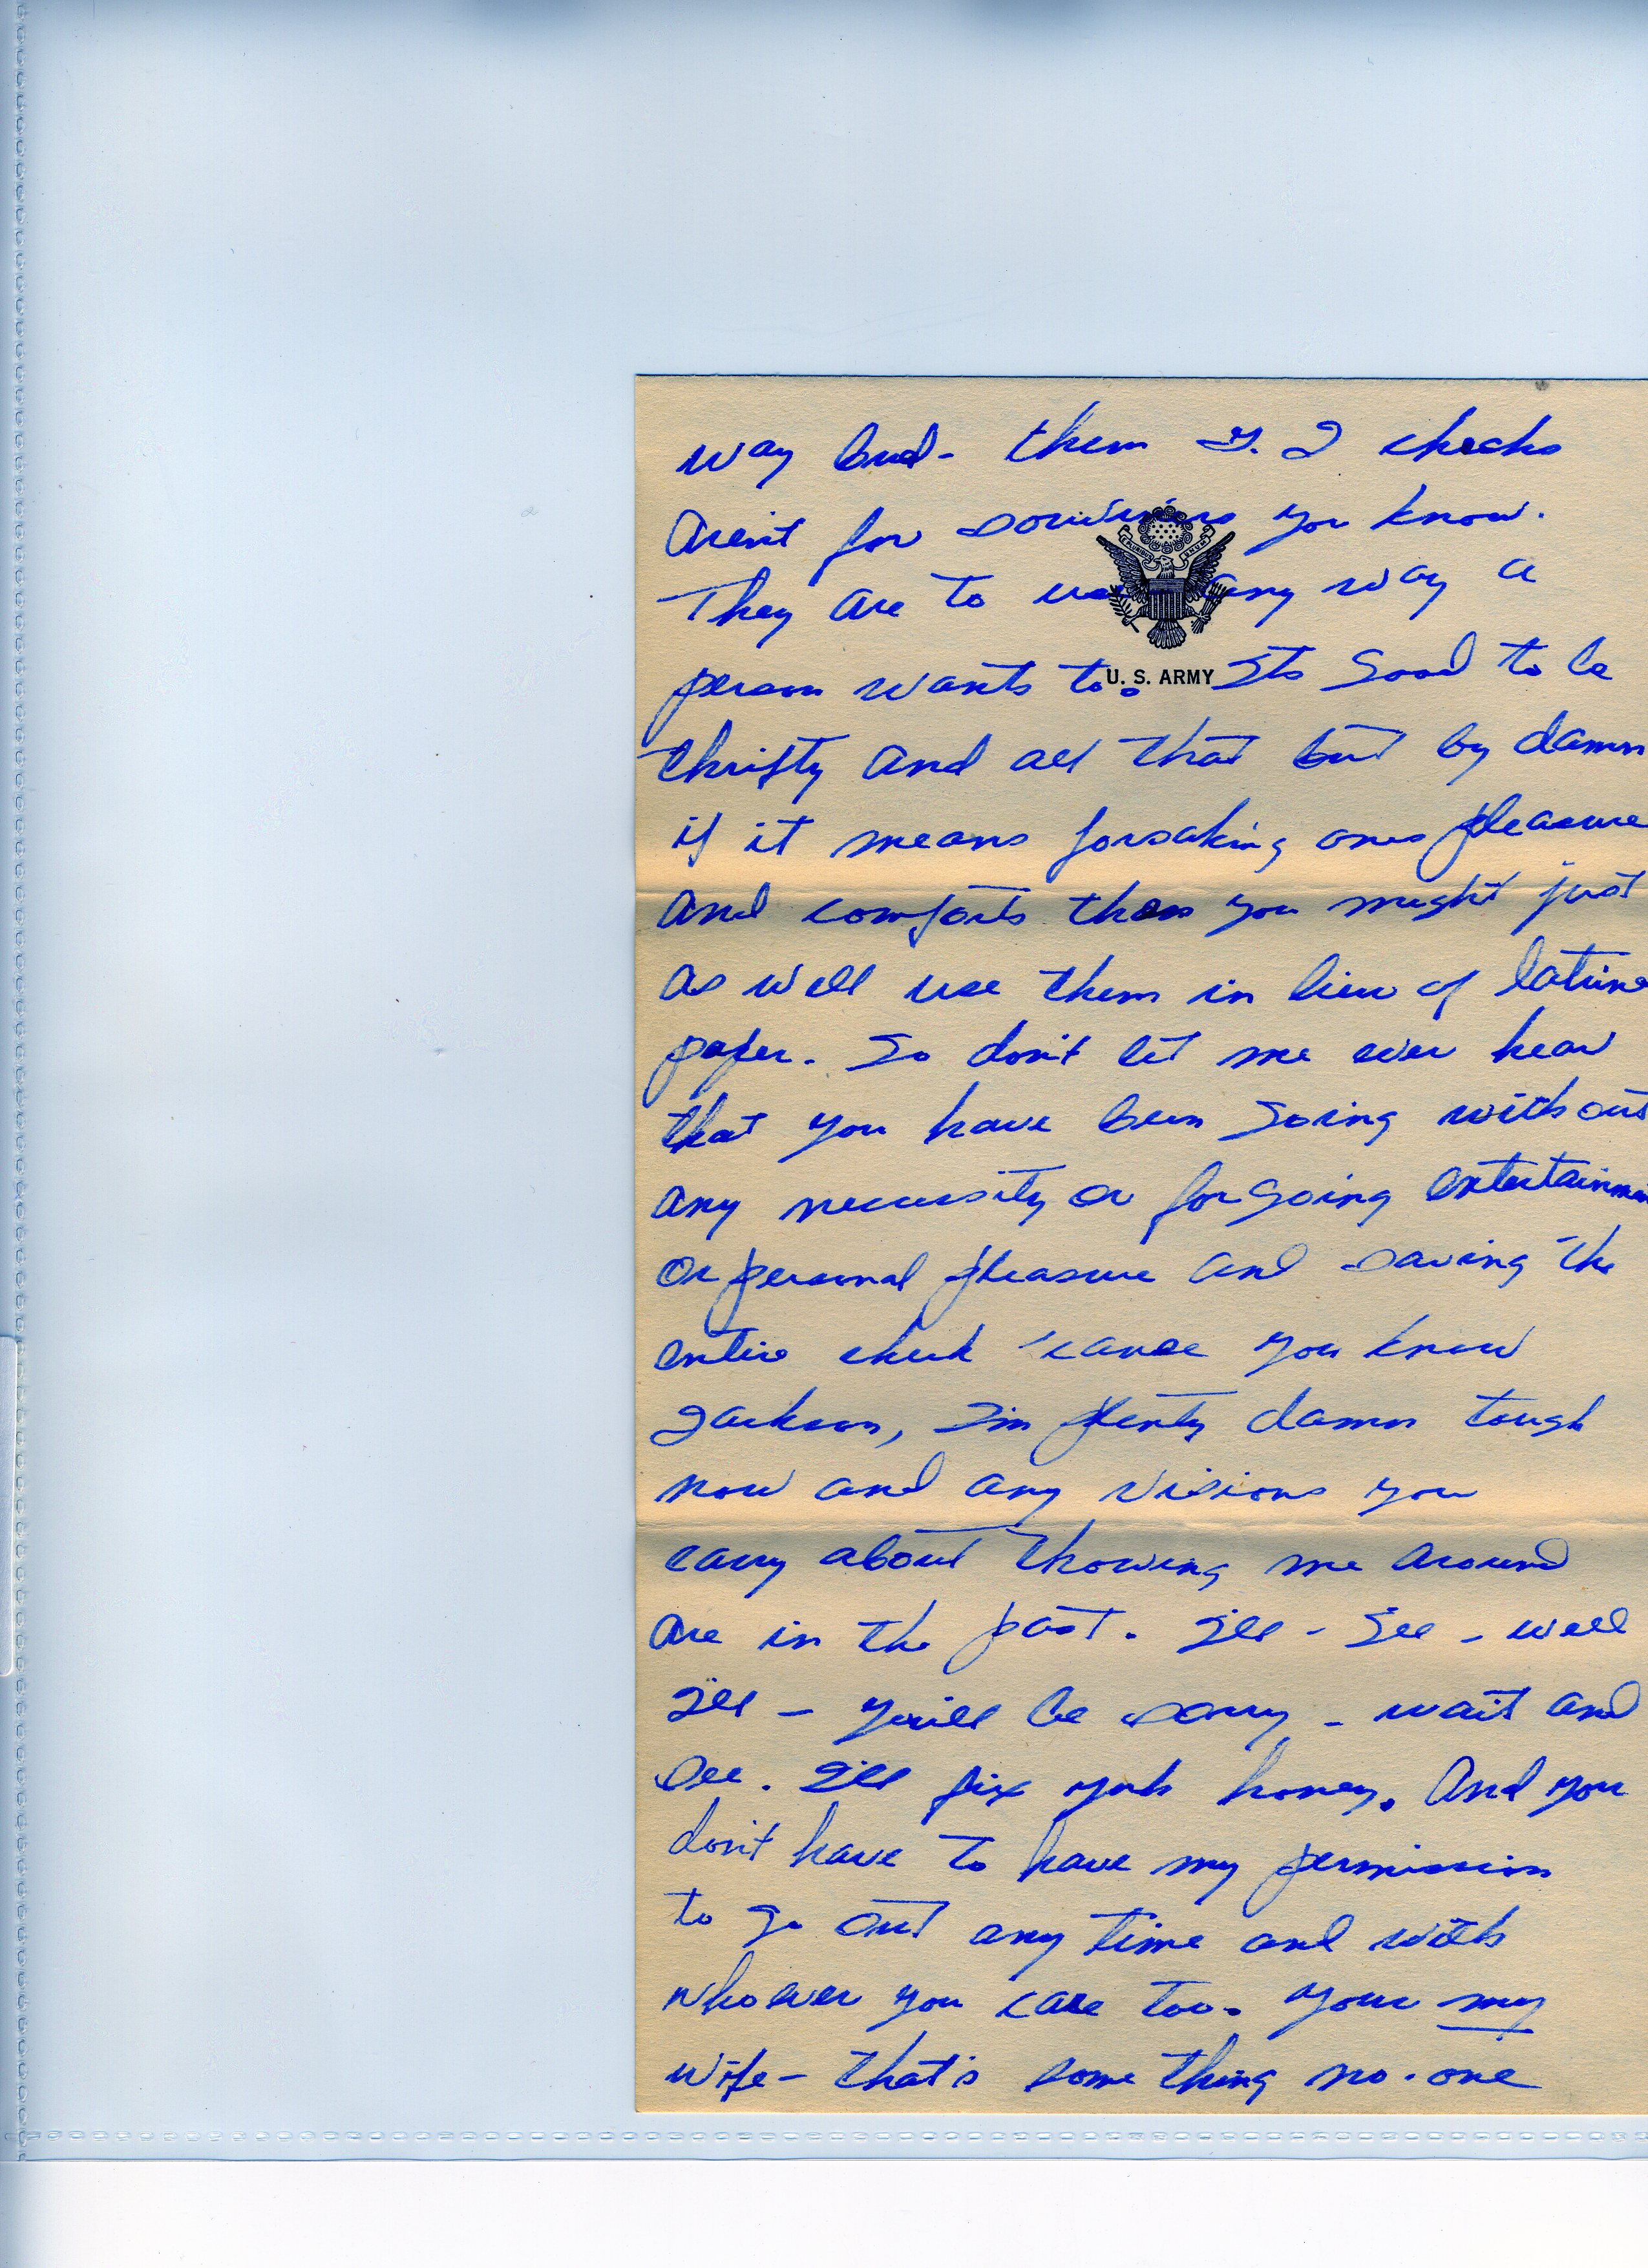 way bud - them G. I checks
Aren't for souvenirs you know.
They are to use any way a
person wants to. Its Good to be
U. S. ARMY
thrifty and all that but by damn
if it means forsaking ones pleasure
and comforts then you might just
as well use them in lieu of latrine
paper. So don't let me ever hear
that you have been Going without
any necessity or forgoing entertainmen
or personal pleasure and saving the
entire check 'cause you know
Jackson, I'm plenty damn tough
now and any visions you
carry about throwing me around
are in the past. I'll - I'll - well
I'll - you'll be sorry - wait and
see. I'll fix yuh honey. And you
don't have to have my permission
to go out any time and with
whoever you care too. Your my
wife - that's some thing no-one